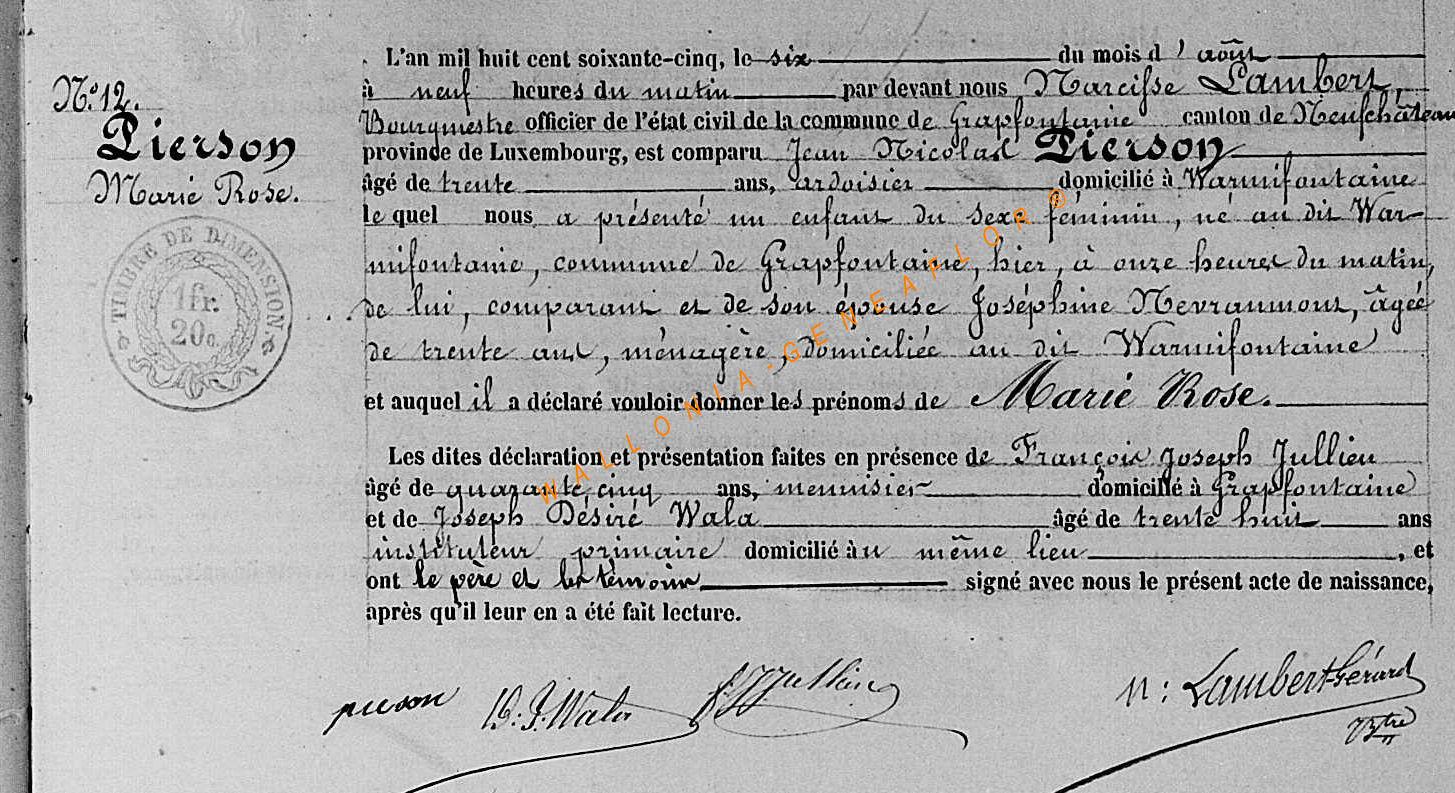 L'an mil huit cent soixante-cinq, le six du mois d'août
à neuf heures du matin par devant nous Narcisse Lambert,
Bourgmestre officier de l'état civil de la commune de Grapfontaine canton de Neufchâteau
province de Luxembourg, est comparu Jean Nicolas Pierson
âgé de trente ans, ardoisier domicilié à Warmifontaine
le quel nous a présenté un enfant du sexe féminin, né au dit War-
mifontaine, commune de Grapfontaine, hier, à onze heures du matin,
de lui, comparant et de son épouse Joséphine Nevraumont, âgée
de trente ans, ménagère, domiciliée au dit Warmifontaine
et auquel il a déclaré vouloir donner les prénoms de Marie Rose.
Les dites déclaration et présentation faites en présence de François Joseph Jullien
âgé de quarante cinq ans, menuisier domicilié à Grapfontaine
et de Joseph Désiré Wala âgé de trente huit ans
instituteur primaire domicilié au même lieu, et
ont le père et les témoins signé avec nous le présent acte de naissance,
après qu'il leur en a été fait lecture.
N° 12.
Pierson
Marie Rose.
TIMBRE DE DIMENSION
1 fr.
20 c.
WALLONIA-GENEAFLOR®
pierson D. J. Wala F J Jullien N: Lambert-Gérard
Btre